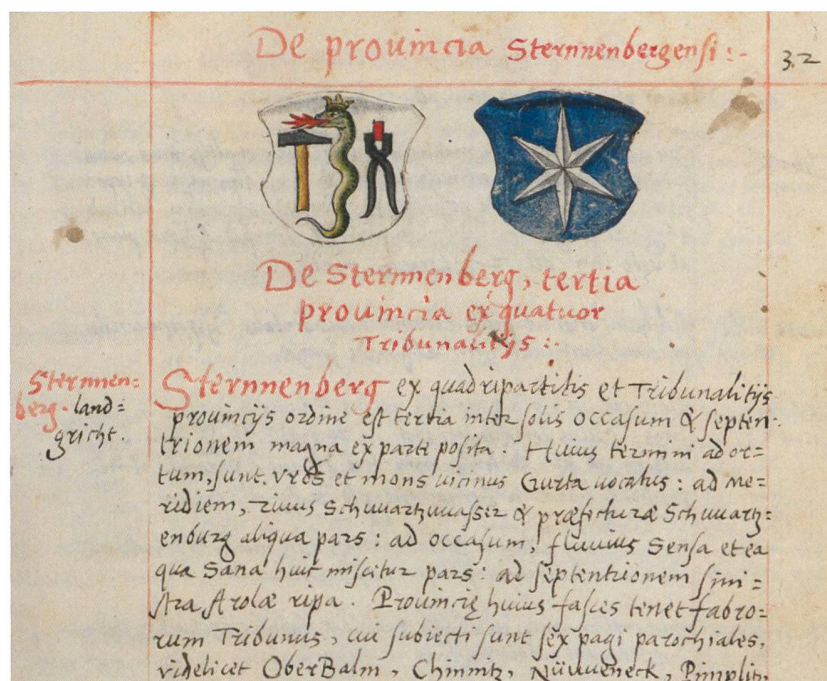 De prouincia Sternnenbergensi :-
32
De Sternnenberg, tertia
prouincia ex quatuor
Tribunalitijs :-
Sternnen=
berg. land=
gricht.
Sternnenberg ex quadripartitis et Tribunalitijs
prouincijs ordine est tertia inter solis occasum & septen-
trionem magna ex parte posita. Huius termini ad or=
tum, sunt. Vros et mons vicinus Gurta vocatus : ad me=
ridiem, riuus Schwartzwasser & præfecturæ Schwartz=
enburg aliqua pars : ad occasum, fluuius Sensa et ea
qua Sana huic miscitur pars : ad septentrionem sini=
stra Arolæ ripa. Prouincię huius fasces tenet fabro=
rum Tribunus, cui subiecti sunt sex pagi parochiales,
videlicet OberBalm, Chinnitz, Nüwweneck, Pimplitz,